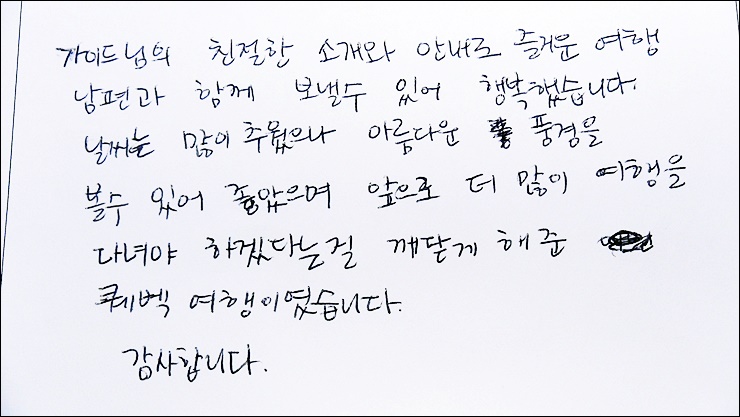 가이드님의 친절한 소개와 안내로 즐거운 여행
남편과 함께 보낼수 있어 행복했습니다.
날씨는 많이 추웠으나 아름다운 풍경을
볼수 있어 좋았으며 앞으로 더 많이 여행을
다녀야 하겠다는걸 깨닫게 해준
퀘벡 여행이였습니다.
감사합니다.